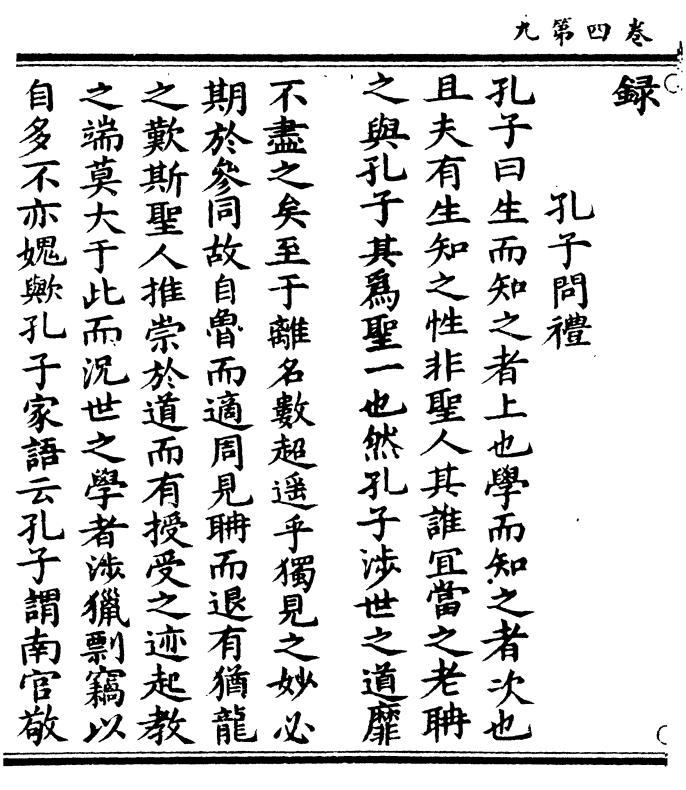 卷四第九
録
孔子問禮
孔子曰生而知之者上也學而知之者次也
且夫有生知之性非聖人其誰冝當之老聃
之與孔子其爲聖一也然孔子涉世之道靡
不盡之矣至于離名數超遥乎獨見之妙必
期於參同故自魯而適周見聃而退有猶龍
之歎斯聖人推崇於道而有授受之迹起教
之端莫大于此而況世之學者涉獵剽竊以
自多不亦媿歟孔子家語云孔子謂南宫敬